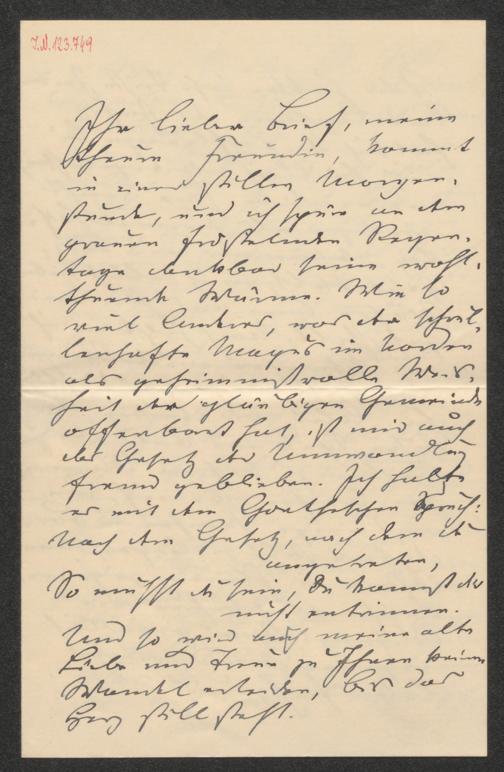 I.N. 123.749
Ihr lieber Brief, meine
theure Freundin, kommt
in einer stillen Morgen-
stunde, und ich spüre an dem
grauen fröstelnden Regen-
tage dankbar seine wohl-
thuende Wärme. Wie so
viel Anderes, was der schrul-
lenhafte Magus im Norden
als geheimnißvolle Weis-
heit der gläubigen Gemeinde
offenbart hat, ist mir auch
das Gesetz der Umwandlung
fremd geblieben. Ich halte
es mit dem Goetheschen Spruch:
Nach dem Gesetz, nach dem du
angetreten,
So mußt du sein, Du kannst dir
nicht entrinnen.
Und so wird auch meine alte
Liebe und Treue zu Ihnen keinen
Wandel erleiden, bis das
Herz still steht.